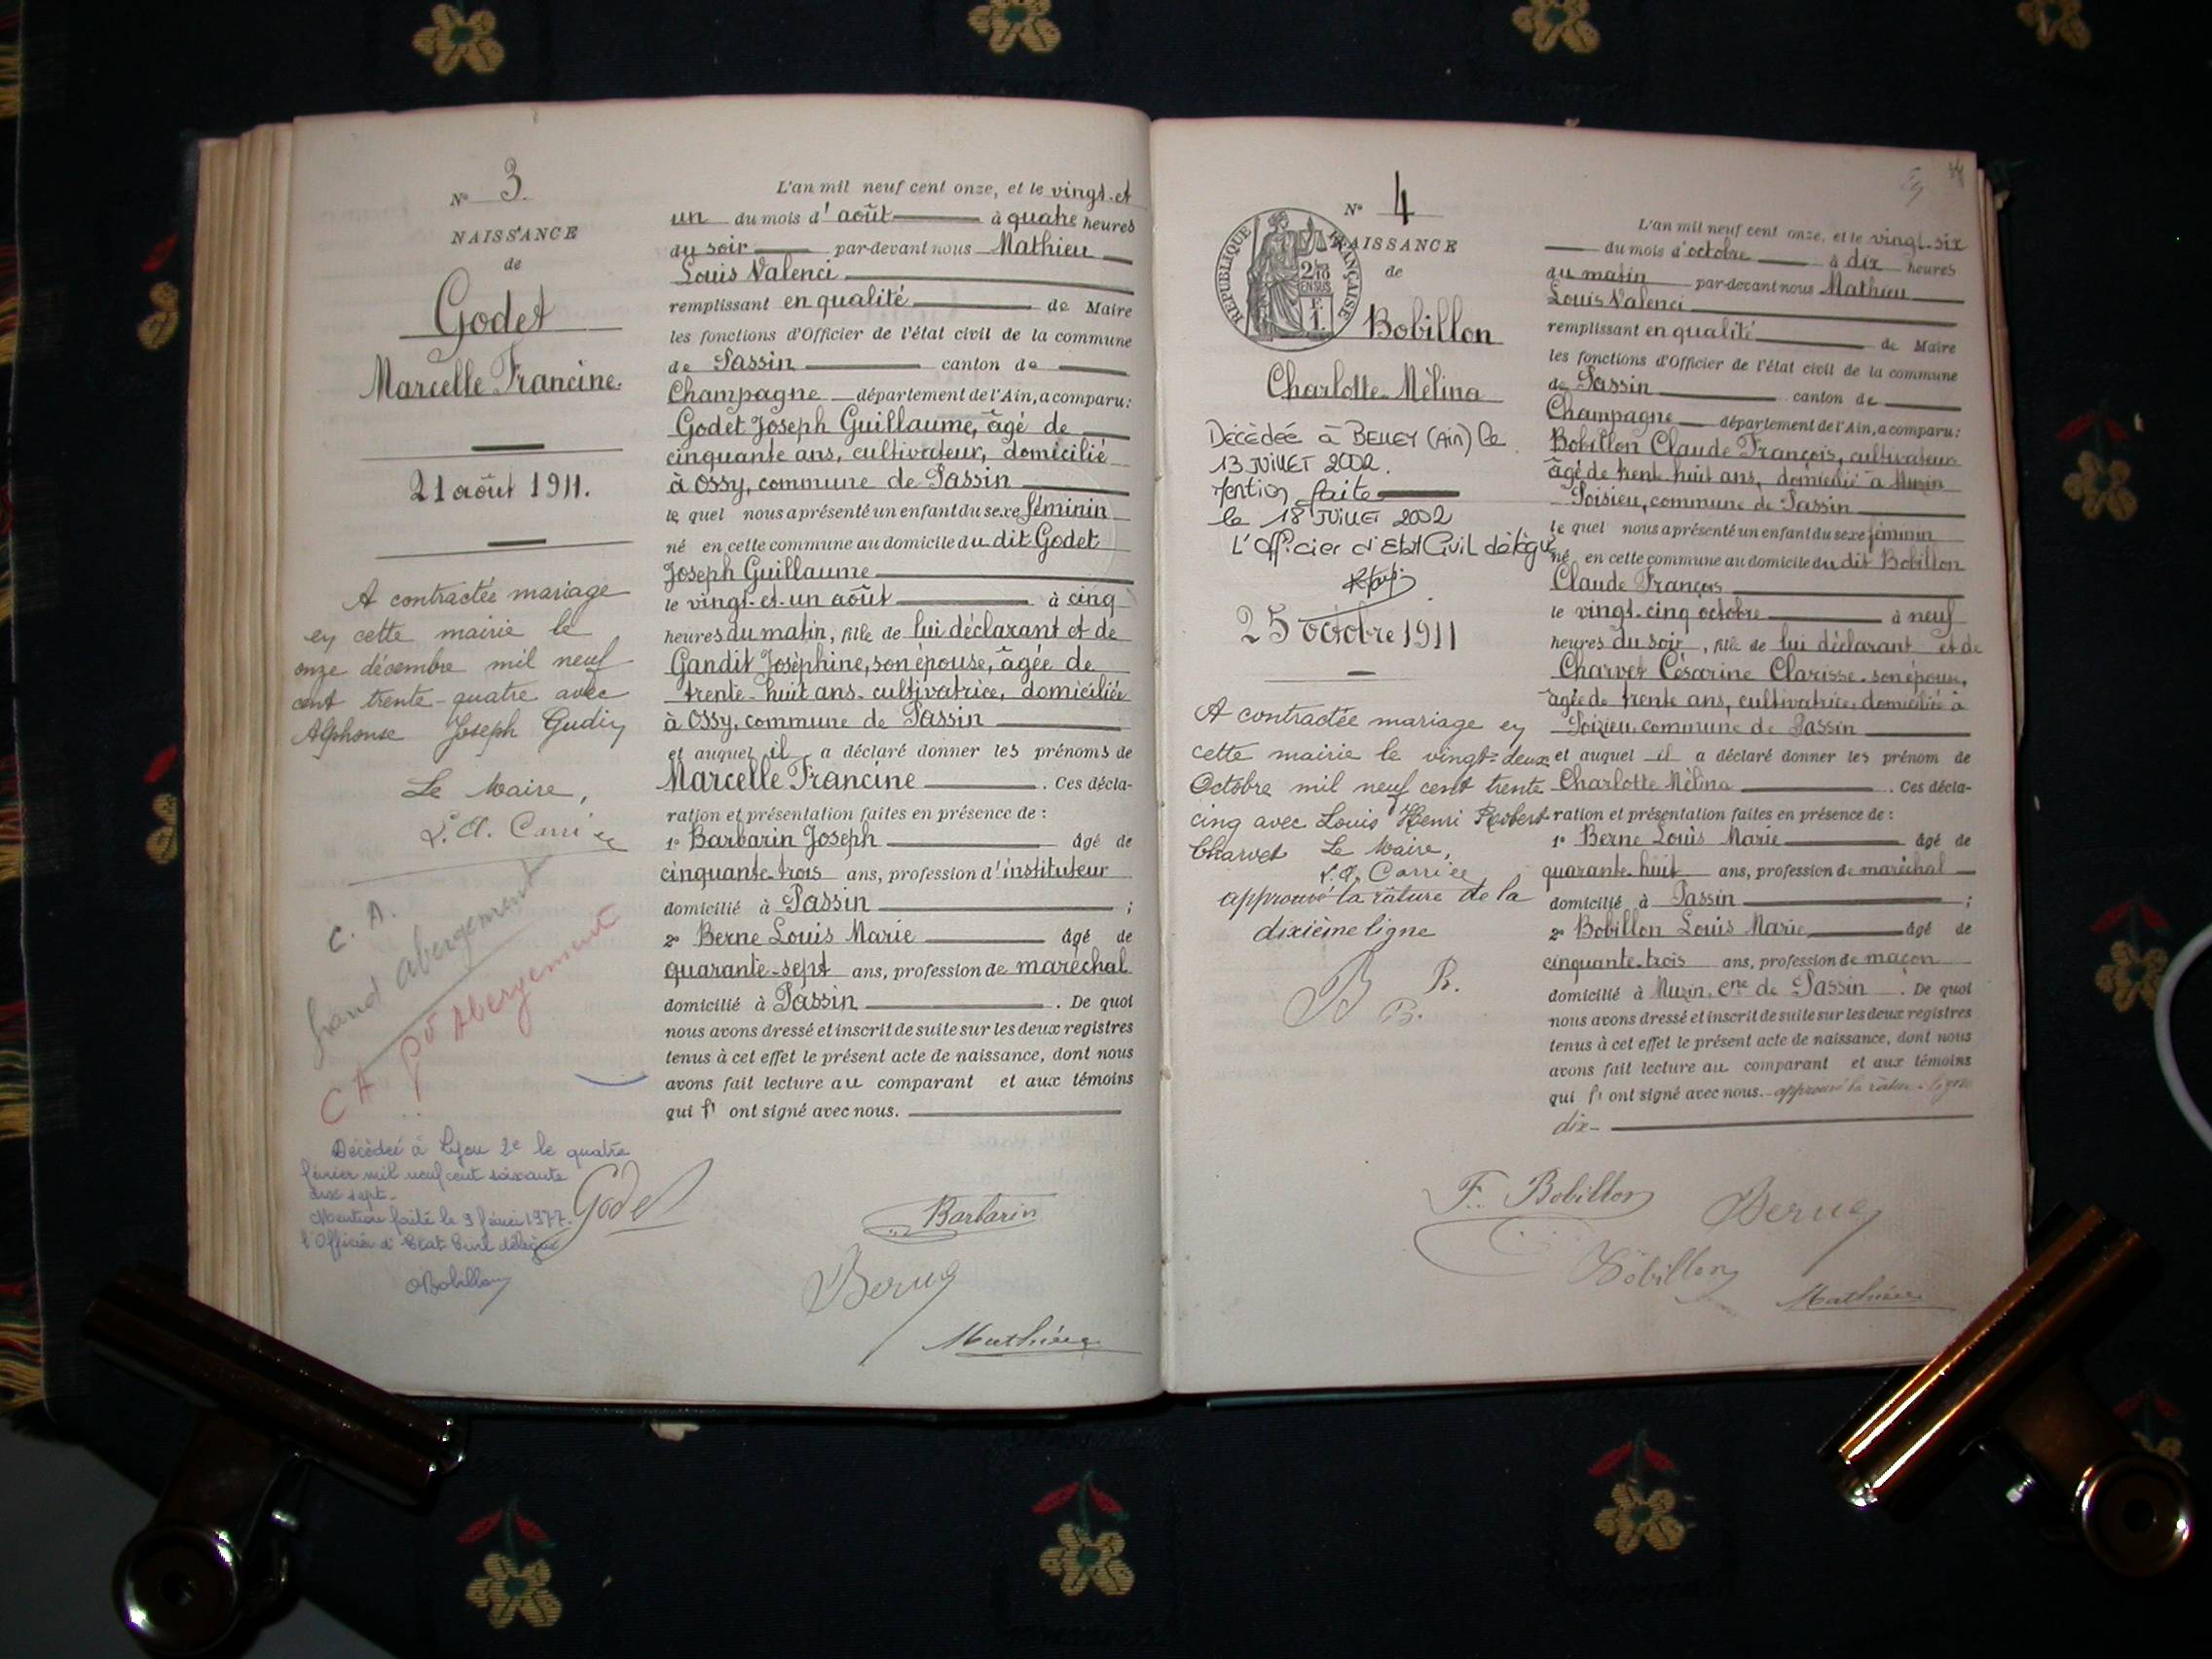 N° 3.
NAISSANCE
de
Godet
Marcelle Francine.
21 août 1911.
A contractée mariage
en cette mairie le
onze décembre mil neuf
cent trente-quatre avec
Alphonse Joseph Gudin
Le Maire,
C. A.
Grand Abergement
CA Gd Abergement
Décédée à Lyon 2e le quatre
février mil neuf cent soixante
dix sept.
Mention faite le 9 février 1977.
l'Officier d'Etat Civil délégué
Bobillon
L'an mil neuf cent onze, et le vingt-et
un du mois d'août à quatre heures
du soir par-devant nous Mathieu
Louis Valenci
remplissant en qualité de Maire
les fonctions d'Officier de l'état civil de la commune
de Passin canton de
Champagne département de l'Ain, a comparu:
Godet Joseph Guillaume, âgé de
cinquante ans, cultivateur, domicilié
à Ossy, commune de Passin
le quel nous a présenté un enfant du sexe féminin
né en cette commune au domicile du dit Godet
Joseph Guillaume
le vingt-et-un août à cinq
heures du matin, fille de lui déclarant et de
Gandit Joséphine, son épouse, âgée de
trente-huit ans, cultivatrice, domiciliée
à Ossy, commune de Passin
et auquel il a déclaré donner les prénoms de
Marcelle Francine . Ces décla-
ration et présentation faites en présence de :
1° Barbarin Joseph âgé de
cinquante-trois ans, profession d'instituteur
domicilié à Passin ;
2° Berne Louis Marie âgé de
quarante-sept ans, profession de maréchal
domicilié à Passin . De quoi
nous avons dressé et inscrit de suite sur les deux registres
tenus à cet effet le présent acte de naissance, dont nous
avons fait lecture au comparant et aux témoins
qui l' ont signé avec nous.
Godet
Barbarin
Berne
Mathieu
N° 4
REPUBLIQUE FRANÇAISE
NAISSANCE
de
2/10
EN SUS
Bobillon
Charlotte Mélina
Décédée à BELLEY (Ain) le
13 JUILLET 2002.
Mention faite
le 18 JUILLET 2002
L'Officier d'Etat Civil délégué
25 octobre 1911
A contractée mariage en
cette mairie le vingt-deux
Octobre mil neuf cent trente
cinq avec Louis Henri Robert
Charvet Le Maire,
approuvé la râture de la
dixième ligne
B R.
B.
L'an mil neuf cent onze, et le vingt-six
du mois d'octobre à dix heures
du matin par-devant nous Mathieu
Louis Valenci
remplissant en qualité de Maire
les fonctions d'Officier de l'état civil de la commune
de Passin canton de
Champagne département de l'Ain, a comparu:
Bobillon Claude François, cultivateur
âgé de trente huit ans, domicilié à Muzin
Poisieu, commune de Passin
le quel nous a présenté un enfant du sexe féminin
né en cette commune au domicile du dit Bobillon
Claude François
le vingt-cinq octobre à neuf
heures du soir, fille de lui déclarant et de
Charvet Césarine Clarisse, son épouse,
âgée de trente ans, cultivatrice, domiciliée à
Poizieu, commune de Passin
et auquel il a déclaré donner les prénom de
Charlotte Mélina . Ces décla-
ration et présentation faites en présence de :
1° Berne Louis Marie âgé de
quarante-huit ans, profession de maréchal
domicilié à Passin ;
2° Bobillon Louis Marie âgé de
cinquante-trois ans, profession de maçon
domicilié à Muzin, cne de Passin . De quoi
nous avons dressé et inscrit de suite sur les deux registres
tenus à cet effet le présent acte de naissance, dont nous
avons fait lecture au comparant et aux témoins
qui l' ont signé avec nous. approuvé la râture ligne
dix-
F. Bobillon
Berne
Bobillon
Mathieu